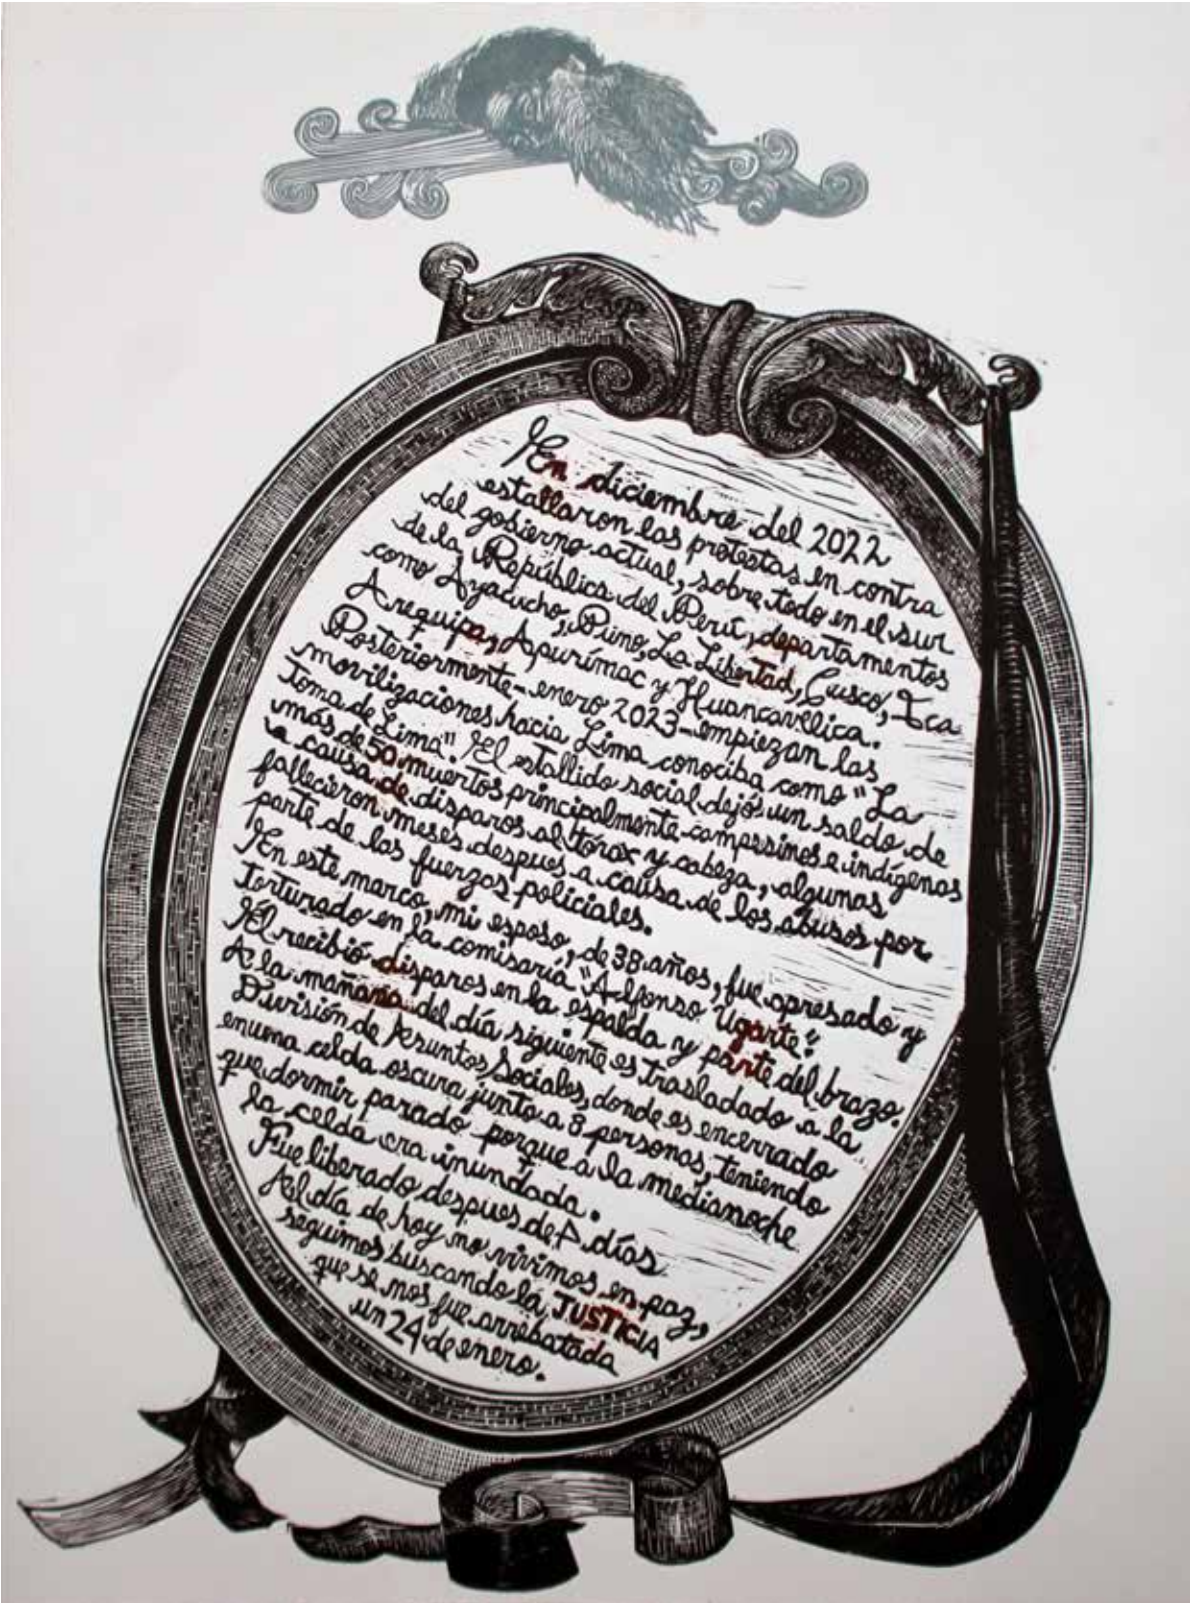 En diciembre del 2022
estallaron las protestas en contra
del gobierno actual, sobre todo en el sur
de la República del Perú, departamentos
como Ayacucho, Puno, La Libertad, Cusco, Ica
Arequipa, Apurímac y Huancavelica.
Posteriormente - enero 2023 - empiezan las
movilizaciones hacia Lima conociba como "La
Toma de Lima" El estallido social dejó un saldo de
más de 50 muertos principalmente campesinos e indígenas
a causa de disparos al tórax y cabeza, algunas
fallecieron meses despues a causa de los abusos por
parte de las fuerzas policiales.
En este marco, mi esposo, de 38 años, fue apresado y
torturado en la comisaría "Alfonso Ugarte".
Él recibió disparos en la espalda y parte del brazo.
A la mañana del día siguiente es trasladado a la
División de Asuntos Sociales, donde es encerrado
en una celda oscura junto a 8 personas, teniendo
que dormir parado porque a la medianoche
la celda era inundada.
Fue liberado despues de días
Al día de hoy no vivimos en paz,
seguimos buscando la JUSTICIA
que se nos fue arrebatada
un 24 de enero.